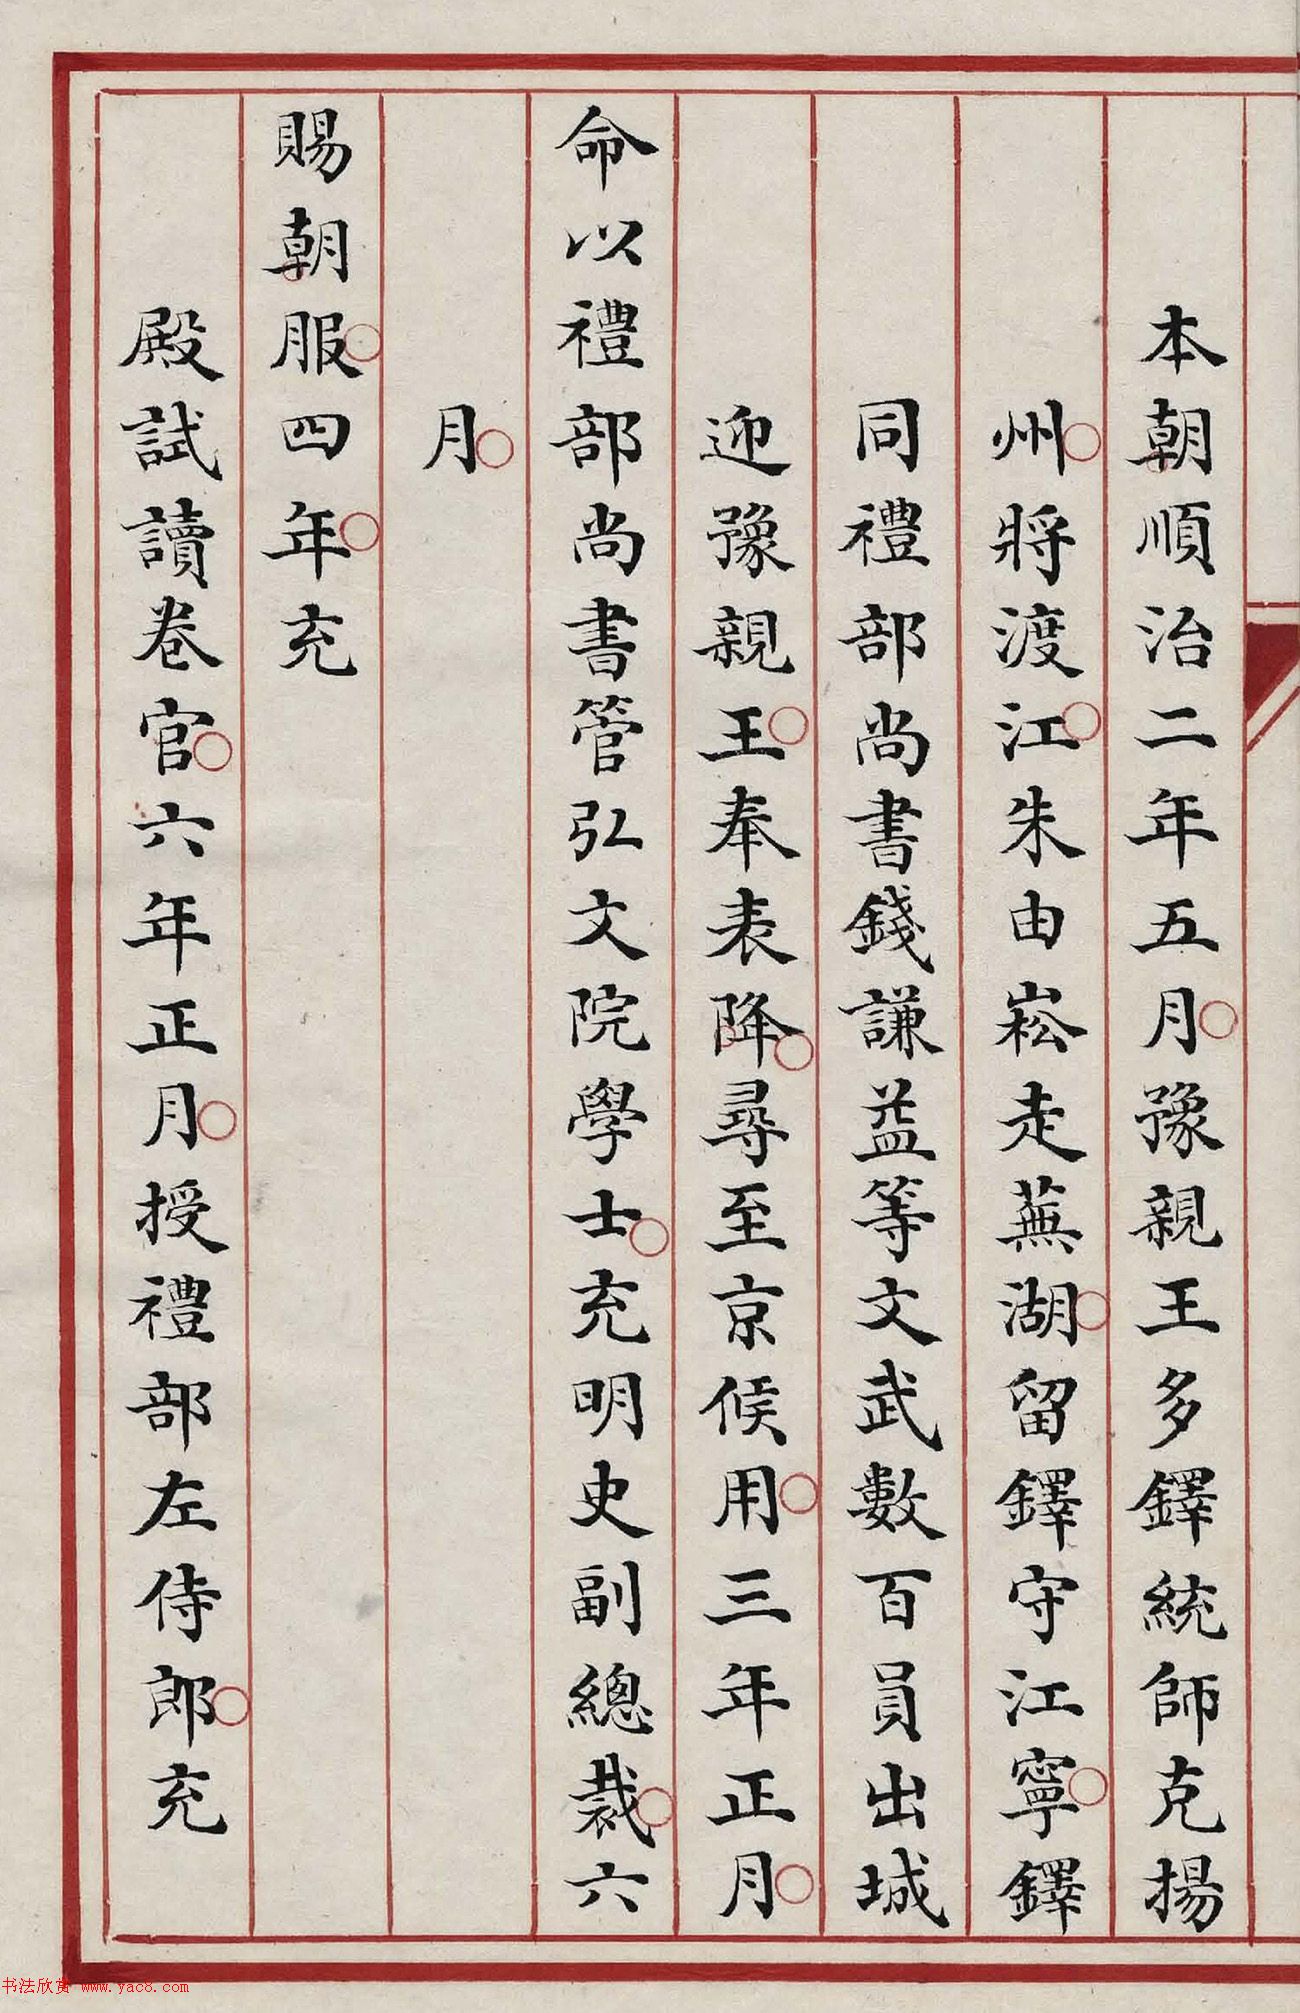 本朝順治二年五月豫親王多鐸統師克揚
州將渡江朱由崧走蕪湖留鐸守江寧鐸
同禮部尚書錢謙益等文武數百員出城
迎豫親王奉表降尋至京候用三年正月
命以禮部尚書管弘文院學士充明史副總裁六
月
賜朝服四年充
殿試讀卷官六年正月授禮部左侍郎充
书法欣赏 www.yac8.com